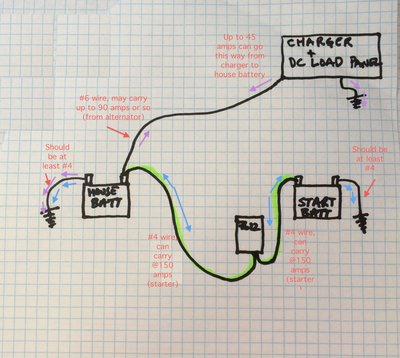 Up to 45
amps can go
this way from
charger to
house battery
CHARGER
+
DC LOAD PANEL
#6 wire, may carry
up to 90 amps or so
(from alternator)
Should
be at
least #4
Should be
at least
#4
HOUSE
BATT
START
BATT
#4 wire,
can
carry
@150
amps
(starter)
#4 wire,
can
carry
@150
amps
(starter